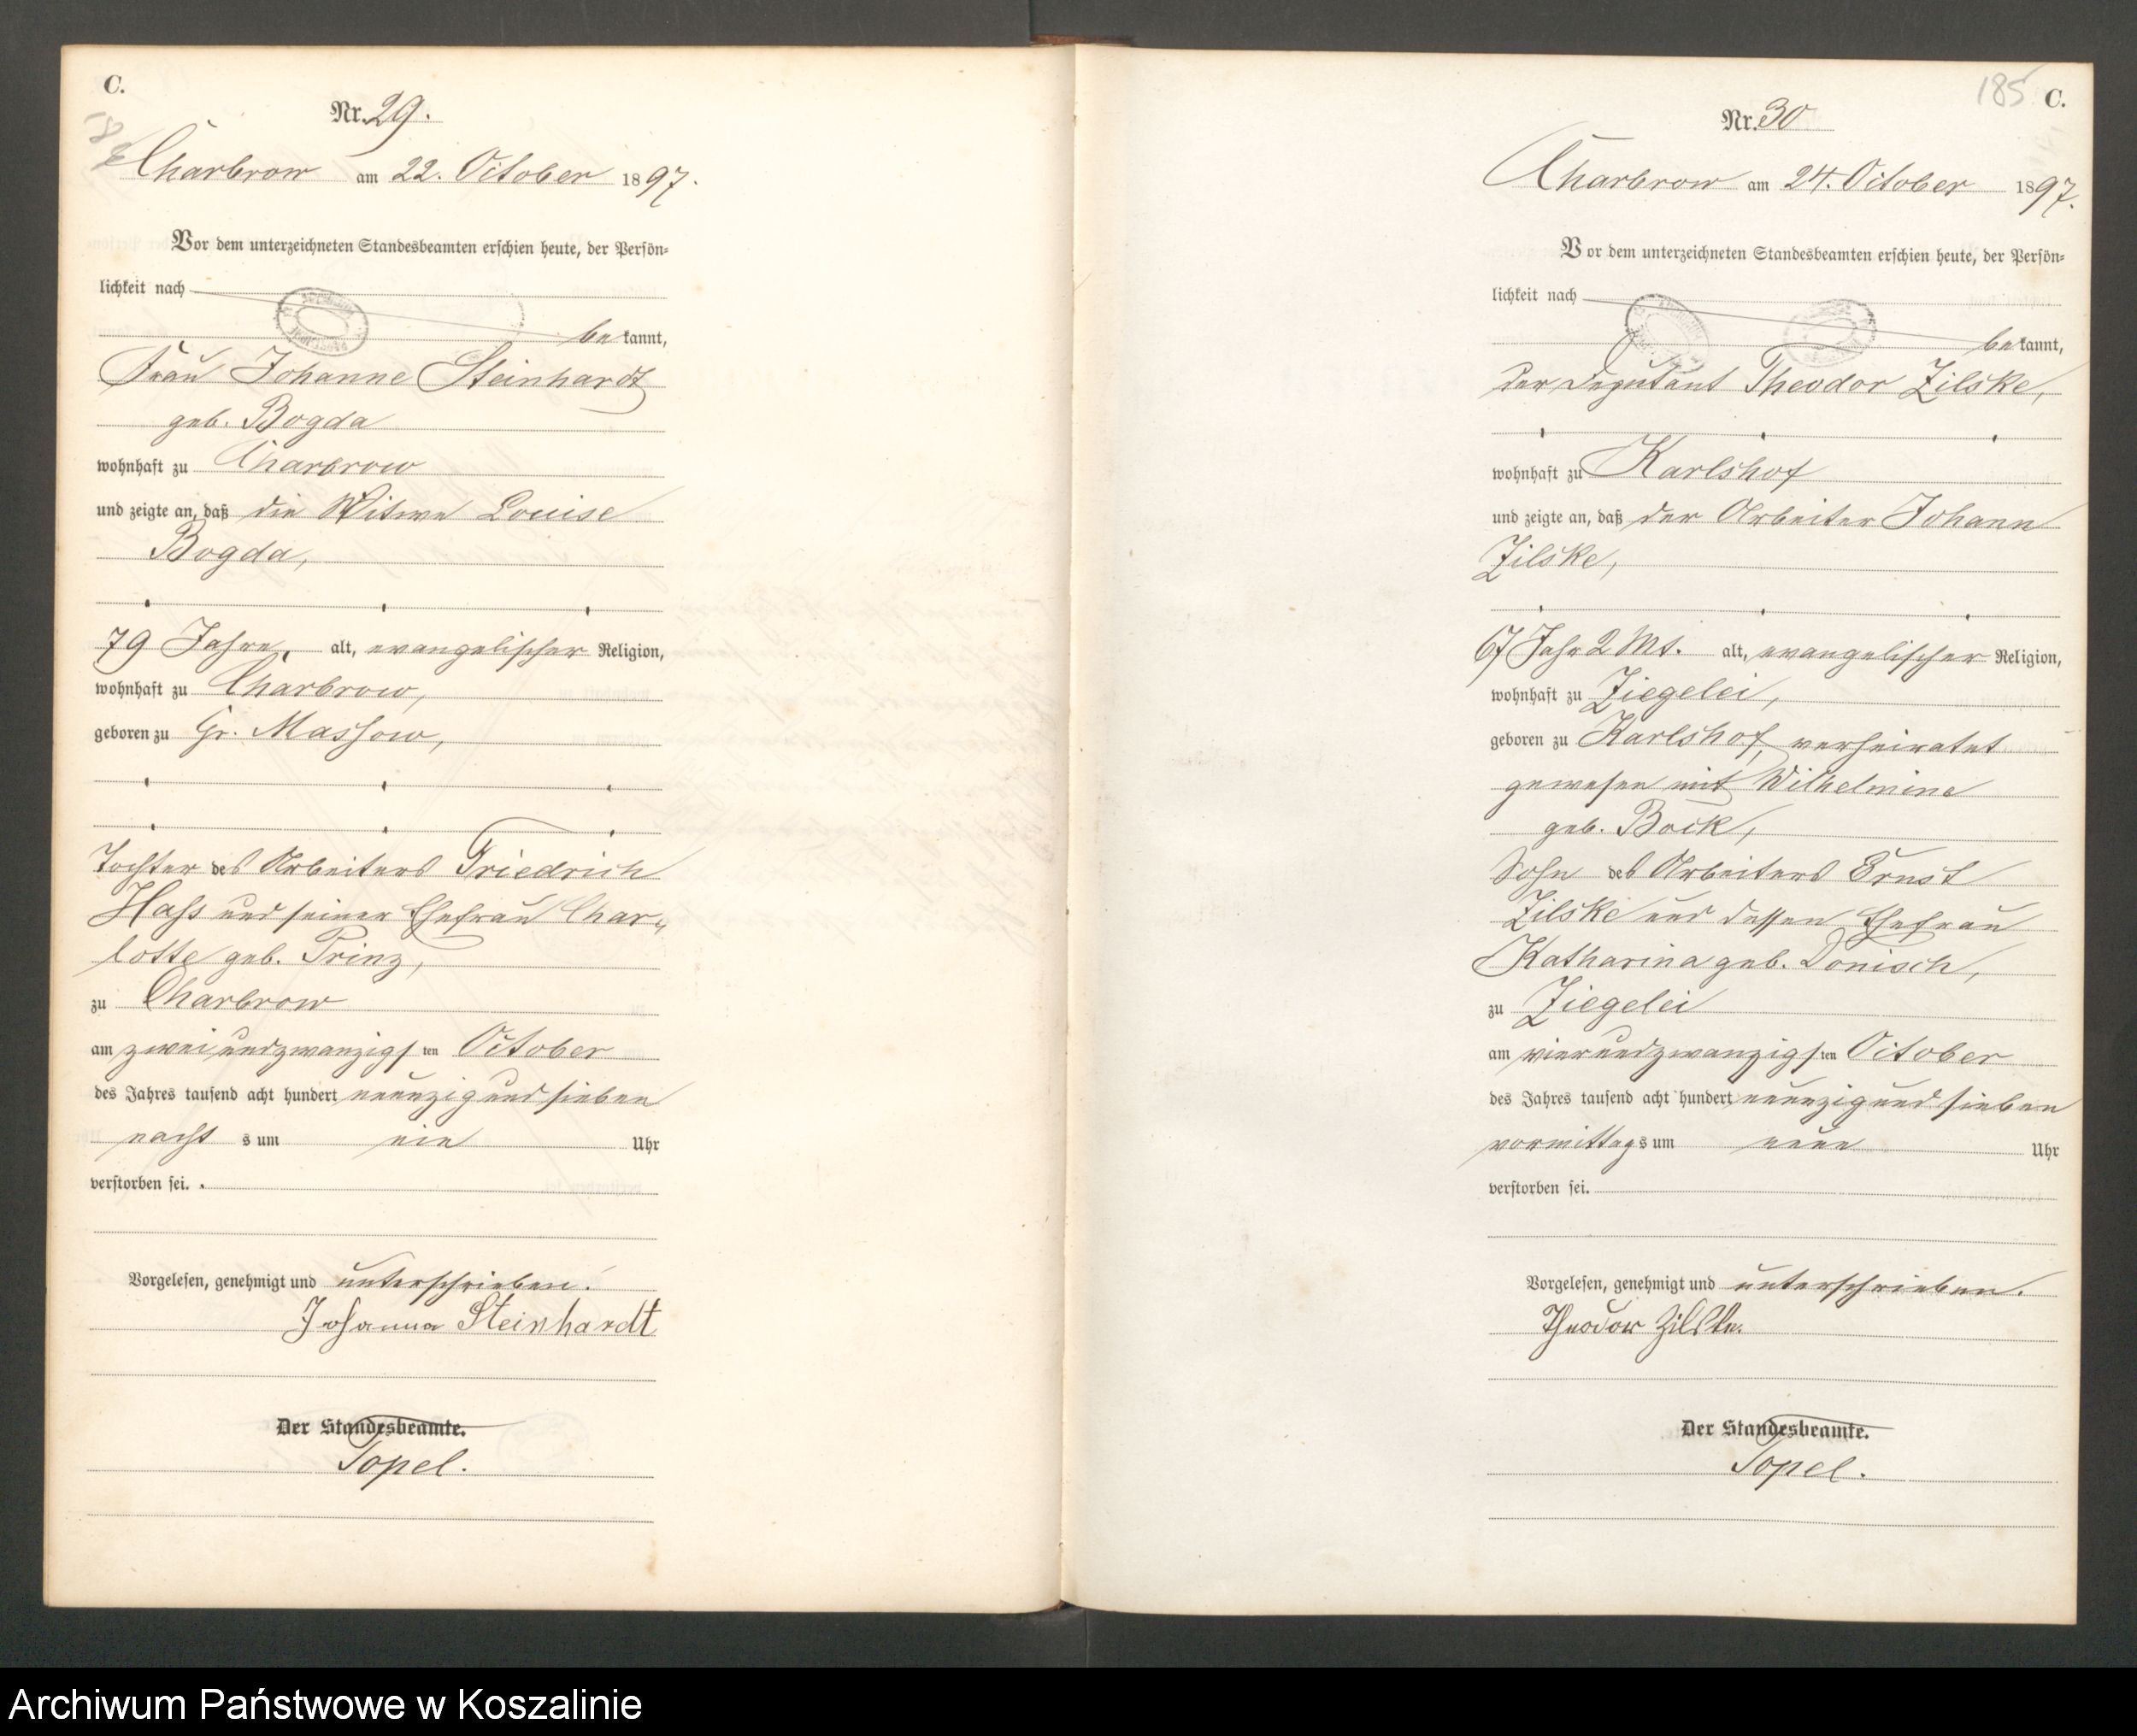 C.
Nr. 29.
Charbrow am 22. October 1897.
Vor dem unterzeichneten Standesbeamten erschien heute, der Persön-
lichkeit nach
bekannt,
Frau Johanne Steinhardt
geb. Bogda
wohnhaft zu Charbrow
und zeigte an, daß die Witwe Louise
Bogda,
79 Jahre, alt, evangelischer Religion,
wohnhaft zu Charbrow,
geboren zu Gr. Massow,
Tochter des Arbeiters Friedrich
Hass und seiner Ehefrau Char-
lotte geb. Prinz,
zu Charbrow
am zwei und zwanzigsten October
des Jahres tausend acht hundert neunzig und sieben
nachts um ein Uhr
verstorben sei.
Vorgelesen, genehmigt und unterschrieben.
Johanna Steinhardt
Der Standesbeamte.
Topel.
185 C.
Nr. 30
Charbrow am 24. October 1897.
Vor dem unterzeichneten Standesbeamten erschien heute, der Persön-
lichkeit nach
bekannt,
der Deputant Theodor Zilske,
wohnhaft zu Karlshof
und zeigte an, daß der Arbeiter Johann
Zilske,
67 Jahr 2 Mt. alt, evangelischer Religion,
wohnhaft zu Ziegelei,
geboren zu Karlshof, verheiratet
gewesen mit Wilhelmine
geb. Bock,
Sohn des Arbeiters Ernst
Zilske und dessen Ehefrau
Katharina geb. Donisch,
zu Ziegelei
am vierundzwanzigsten October
des Jahres tausend acht hundert neunzig und sieben
vormittags um neun Uhr
verstorben sei.
Vorgelesen, genehmigt und unterschrieben.
Theodor Zilske.
Der Standesbeamte.
Topel.
Archiwum Państwowe w Koszalinie